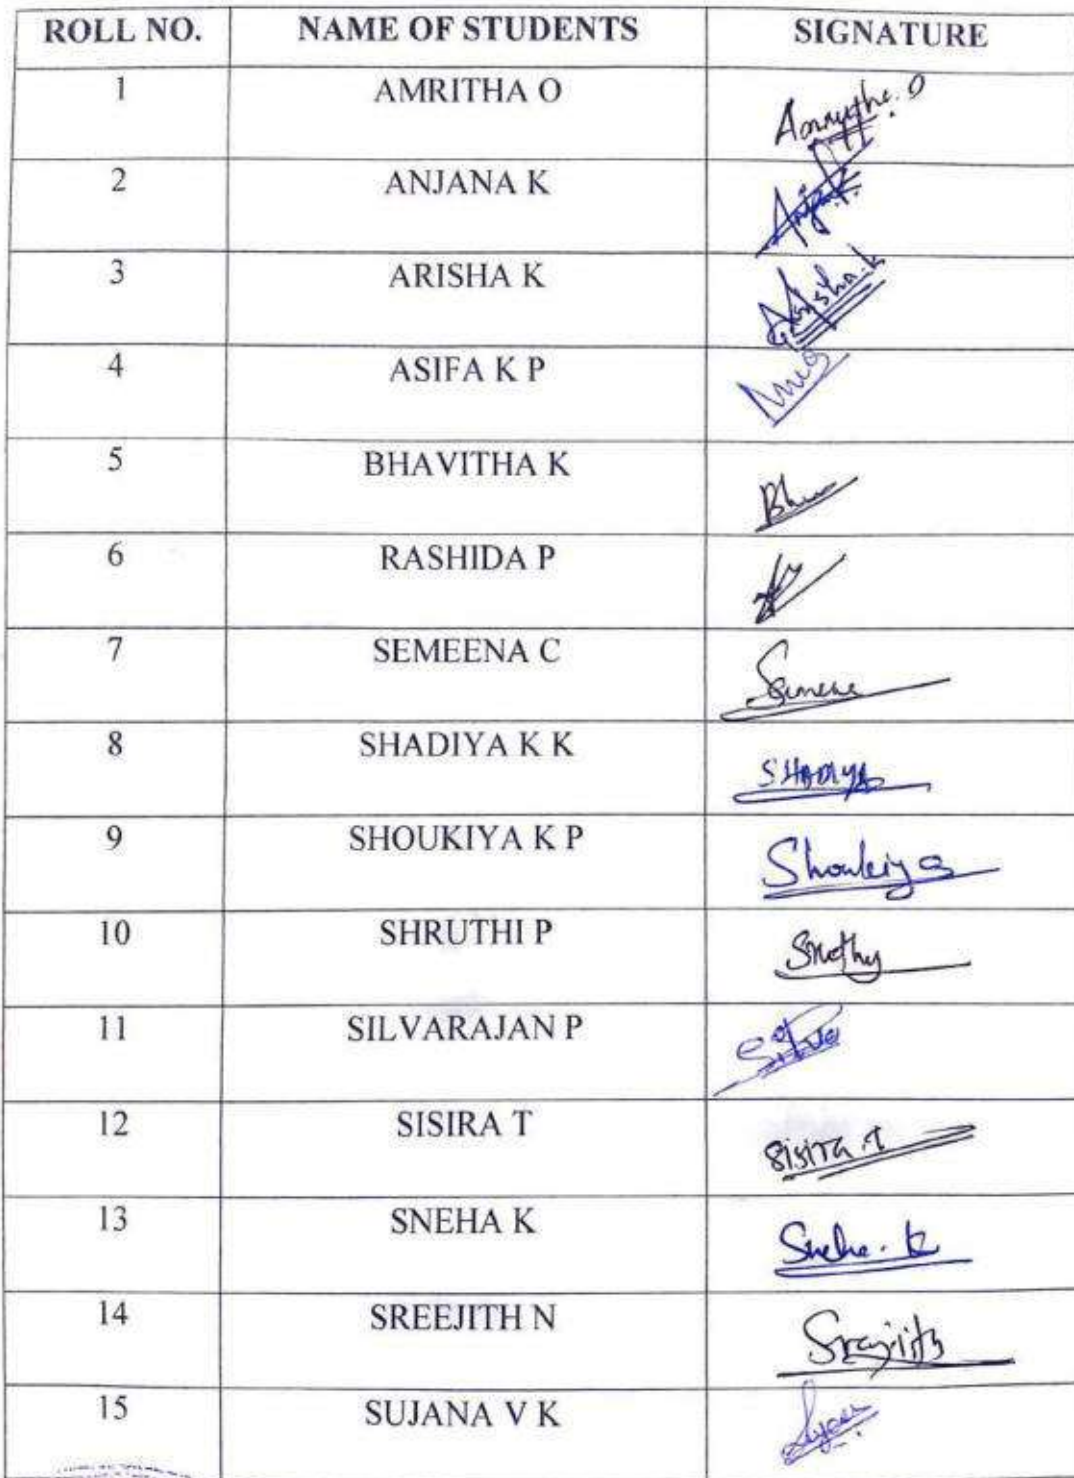 ROLL NO. NAME OF STUDENTS SIGNATURE
1 AMRITHA O Amrytha.O
2 ANJANA K
3 ARISHA K Arisha.k
4 ASIFA K P
5 BHAVITHA K
6 RASHIDA P
7 SEMEENA C
8 SHADIYA K K SHADIYA
9 SHOUKIYA K P Shoukiya
10 SHRUTHI P
11 SILVARAJAN P
12 SISIRA T Sisira.T
13 SNEHA K Sneha.K
14 SREEJITH N
15 SUJANA V K